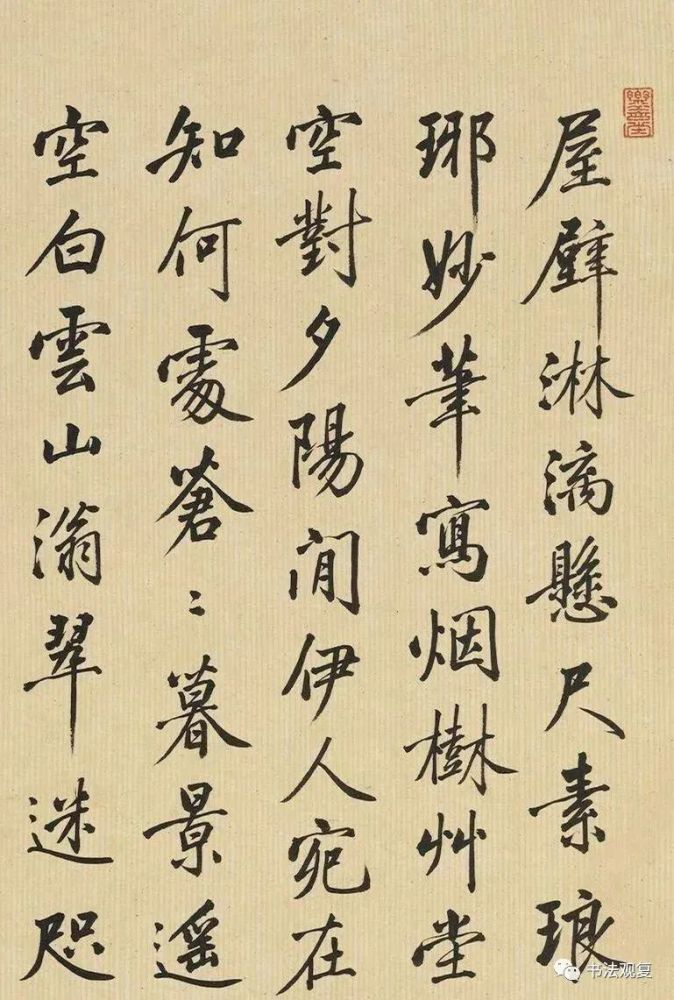 樂善堂
屋壁淋漓懸尺素琅
琊妙筆寫烟樹艸堂
空對夕陽閒伊人宛在
知何處蒼〻暮景遥
空白雲山滃翠迷咫
书法观复